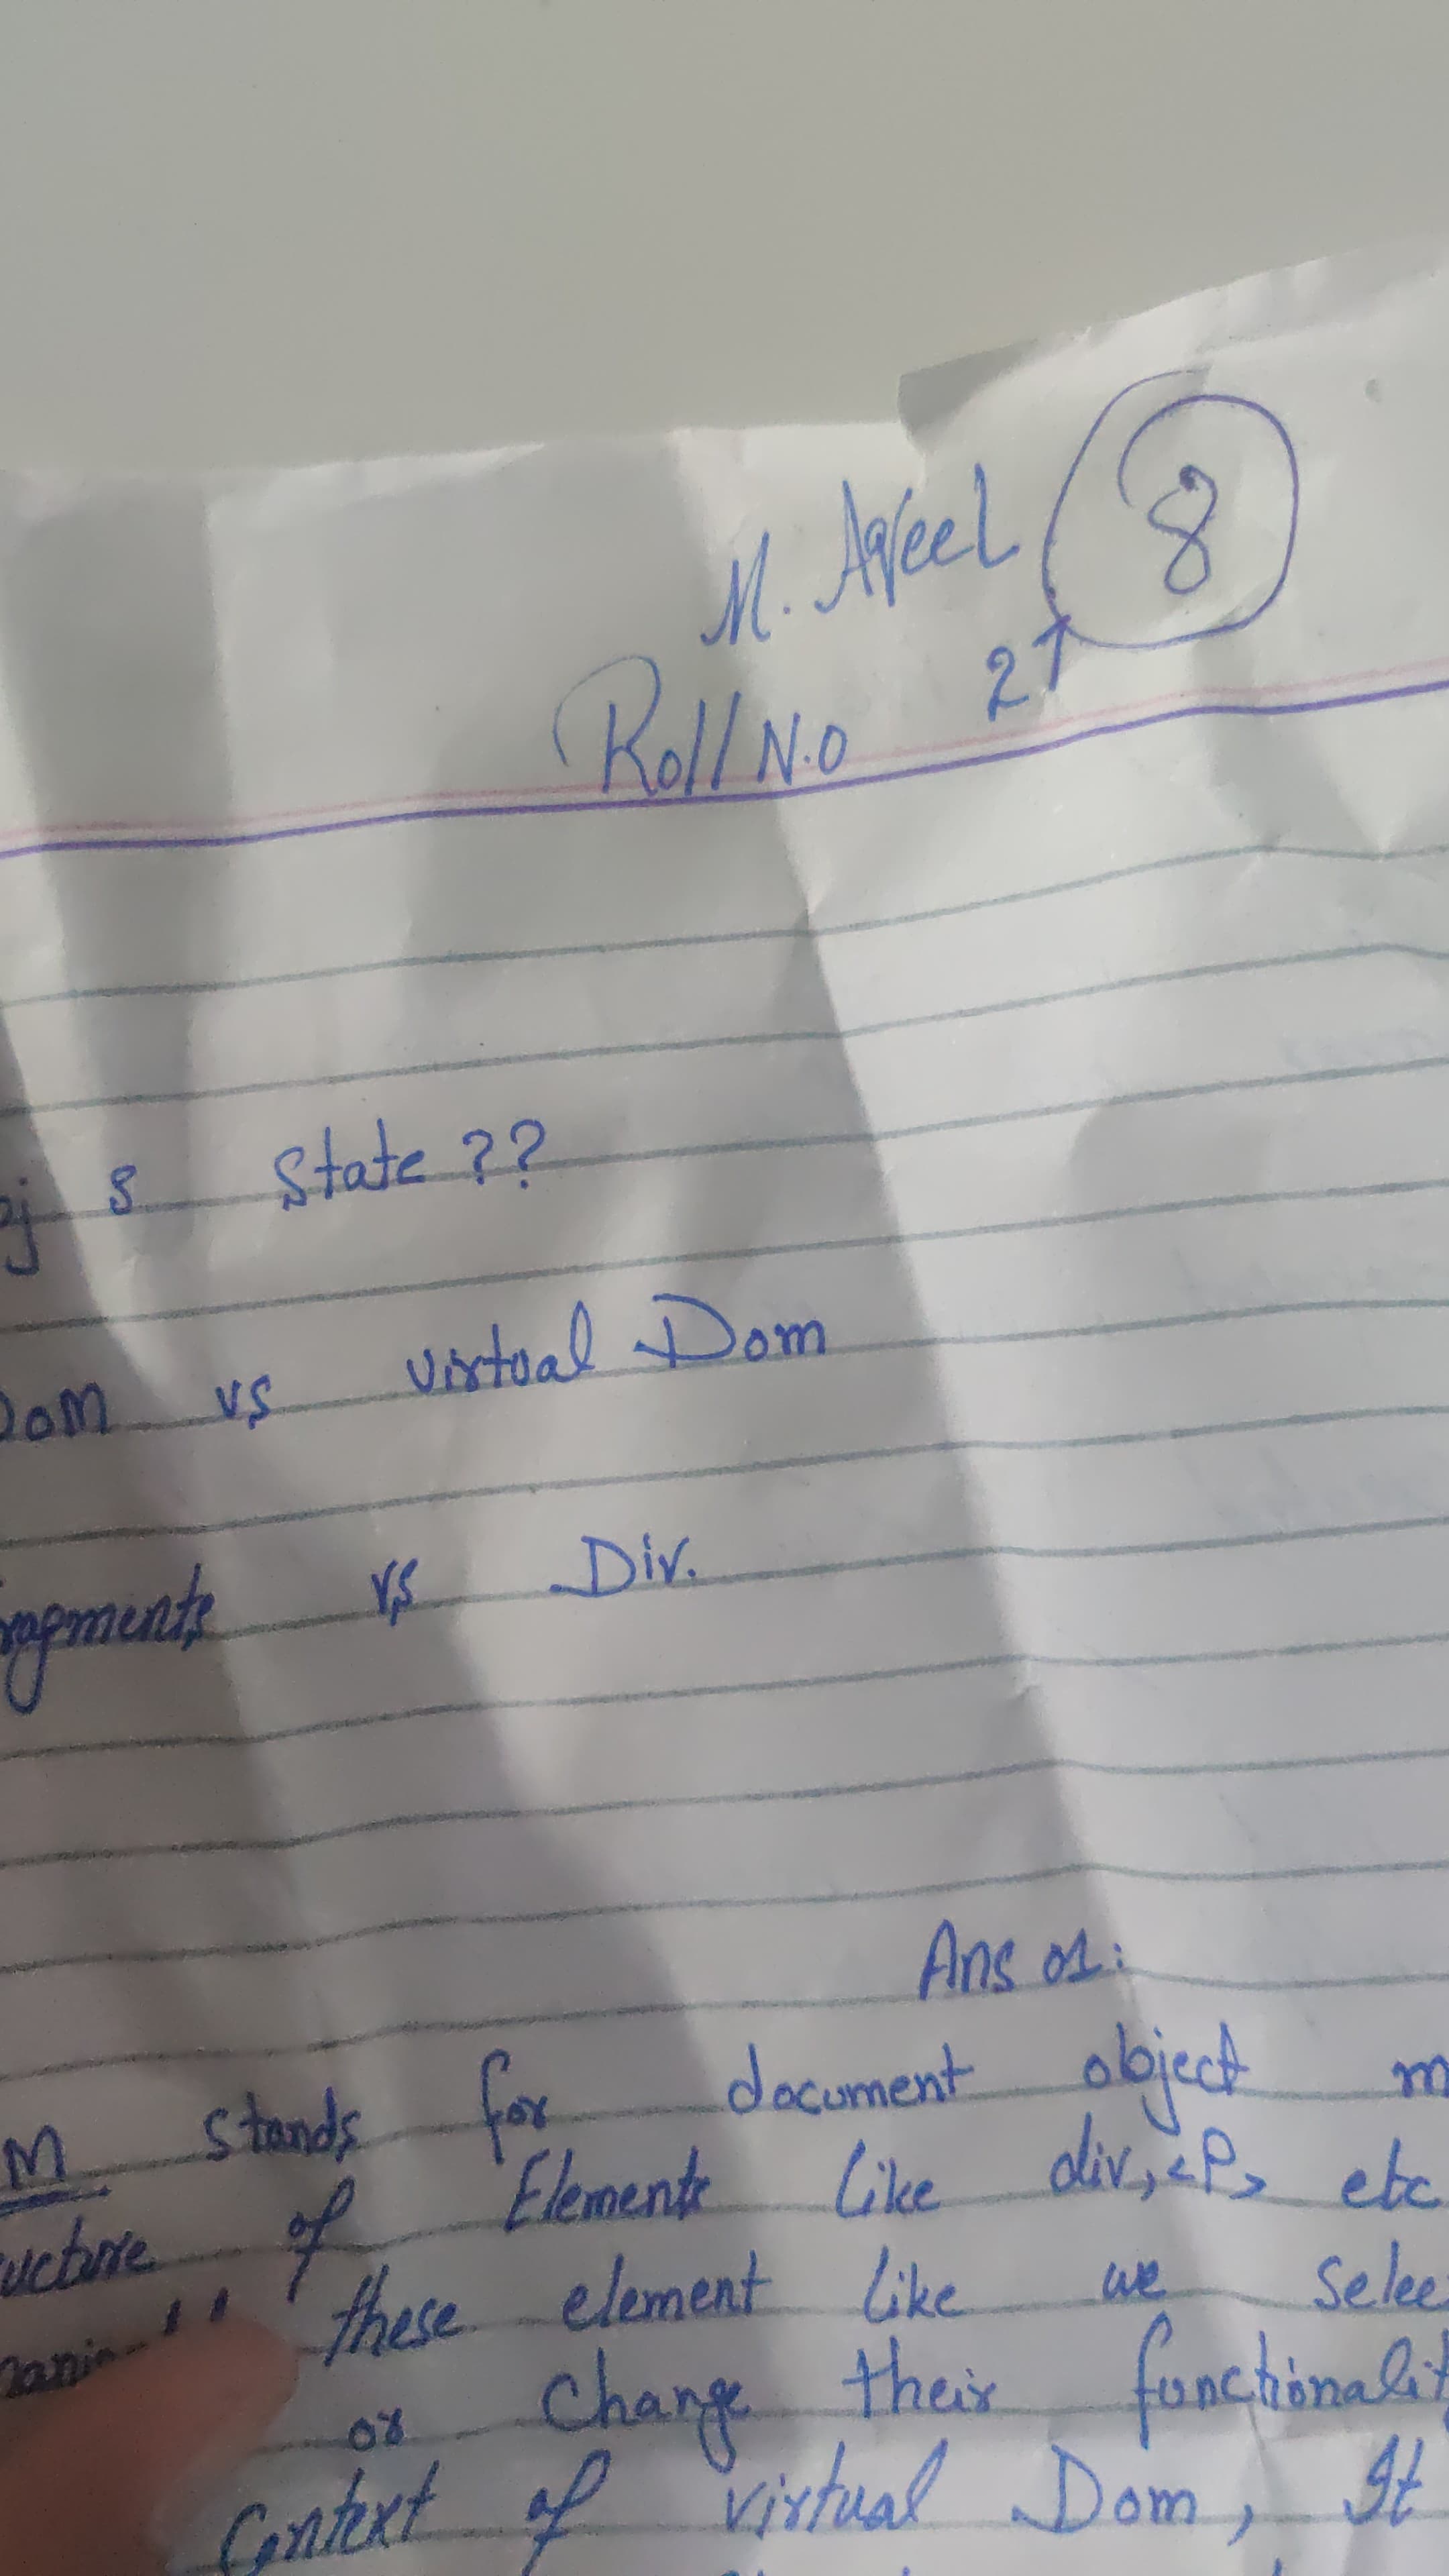 M. Aqeel 8
Roll N.O 21
State ??
Dom vs virtual Dom
ragments vs Div.
Ans 01:
M stands for document object m
ucture of Elements like div, <P> etc
these element like we selec
or change their functionalit
Context of virtual Dom, It